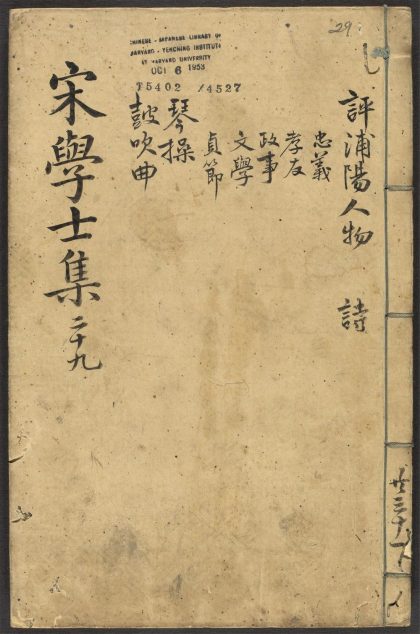 29
CHINESE - JAPANESE LIBRARY OF
HARVARD - YENCHING INSTITUTE
AT HARVARD UNIVERSITY
OCT 6 1953
T5402 /4527
評浦陽人物 詩
忠義
孝友
政事
文學
貞節
琴操
鼓吹曲
宋學士集二十九